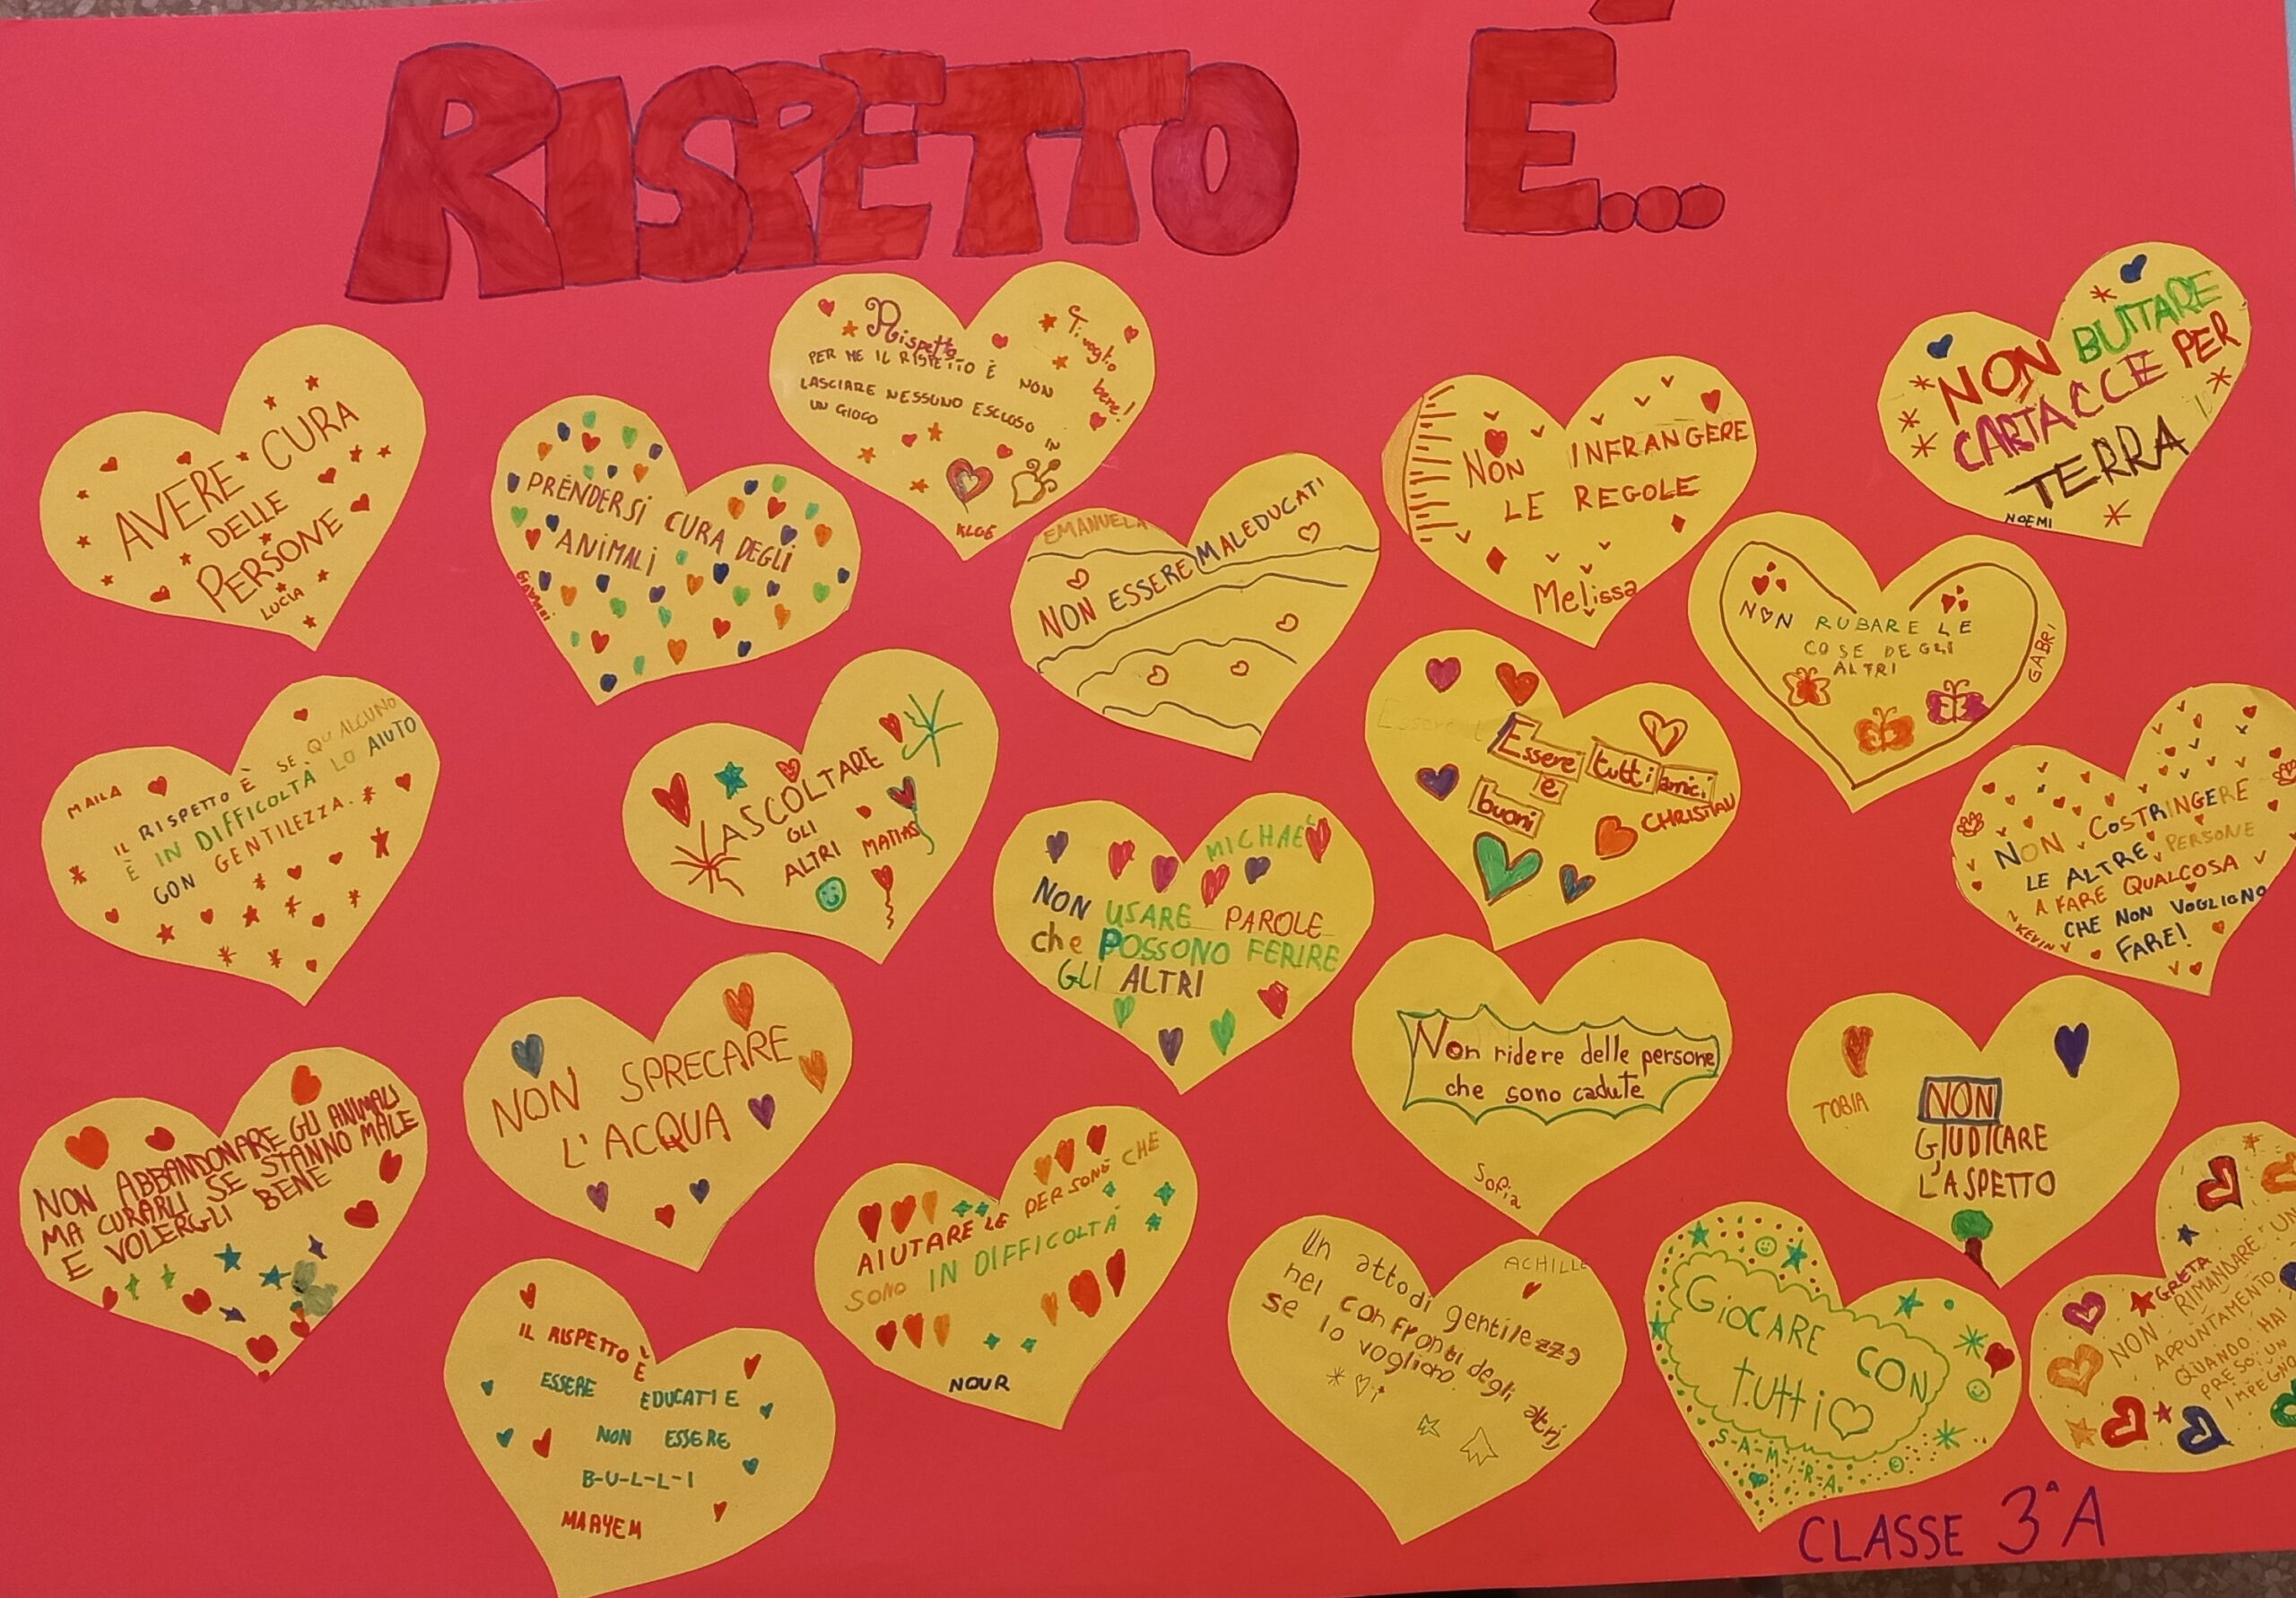 RISPETTO È...
Rispetto
PER ME IL RISPETTO È NON
LASCIARE NESSUNO ESCLUSO IN
UN GIOCO
Ti voglio
bene!
KLOE
NON BUTTARE
CARTACCIE PER
TERRA
NOEMI
AVERE CURA
DELLE
PERSONE
LUCIA
PRENDERSI CURA DEGLI
ANIMALI
EMANUELA
NON ESSERE MALEDUCATI
NON INFRANGERE
LE REGOLE
Melissa
NON RUBARE LE
COSE DEGLI
ALTRI
GABRI
MAILA
IL RISPETTO È SE QUALCUNO
È IN DIFFICOLTÀ LO AIUTO
CON GENTILEZZA.
ASCOLTARE
GLI
ALTRI
MATIAS
Essere tutti amici
e
buoni
CHRISTIAN
NON COSTRINGERE
LE ALTRE PERSONE
A FARE QUALCOSA
CHE NON VOGLIONO
FARE!
KEVIN
MICHAEL
NON USARE PAROLE
che POSSONO FERIRE
GLI ALTRI
NON SPRECARE
L'ACQUA
Non ridere delle persone
che sono cadute
Sofia
TOBIA
NON
GIUDICARE
L'ASPETTO
NON ABBANDONARE GLI ANIMALI
MA CURARLI SE STANNO MALE
E VOLERGLI BENE
AIUTARE LE PERSONE CHE
SONO IN DIFFICOLTÀ
NOUR
IL RISPETTO È
ESSERE EDUCATI E
NON ESSERE
B-U-L-L-I
MAAYEM
ACHILLE
Un atto di gentilezza
nel confronti degli altri,
se lo vogliono.
GIOCARE CON
tutti
S-A-M-I-R-A
GRETA
NON RIMANDARE UN
APPUNTAMENTO
QUANDO HAI
PRESO UN
IMPEGNO
CLASSE 3ªA